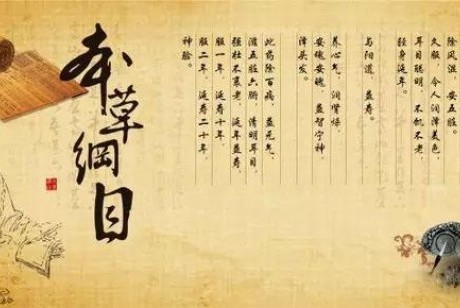 除风湿，安五脏。
久服，令人润泽美色，
耳目聪明，不饥不老
轻身延年。
与阳道，益寿。
养心气，润肾燥，
安魂安魄，益智宁神
泽头发。
此药除百病，益元气，
滋五脏六腑，清明耳目，
强壮不衰老，延年益寿，
服一年，延寿十年，
服二年，延寿二十年，
神验。
本草綱目